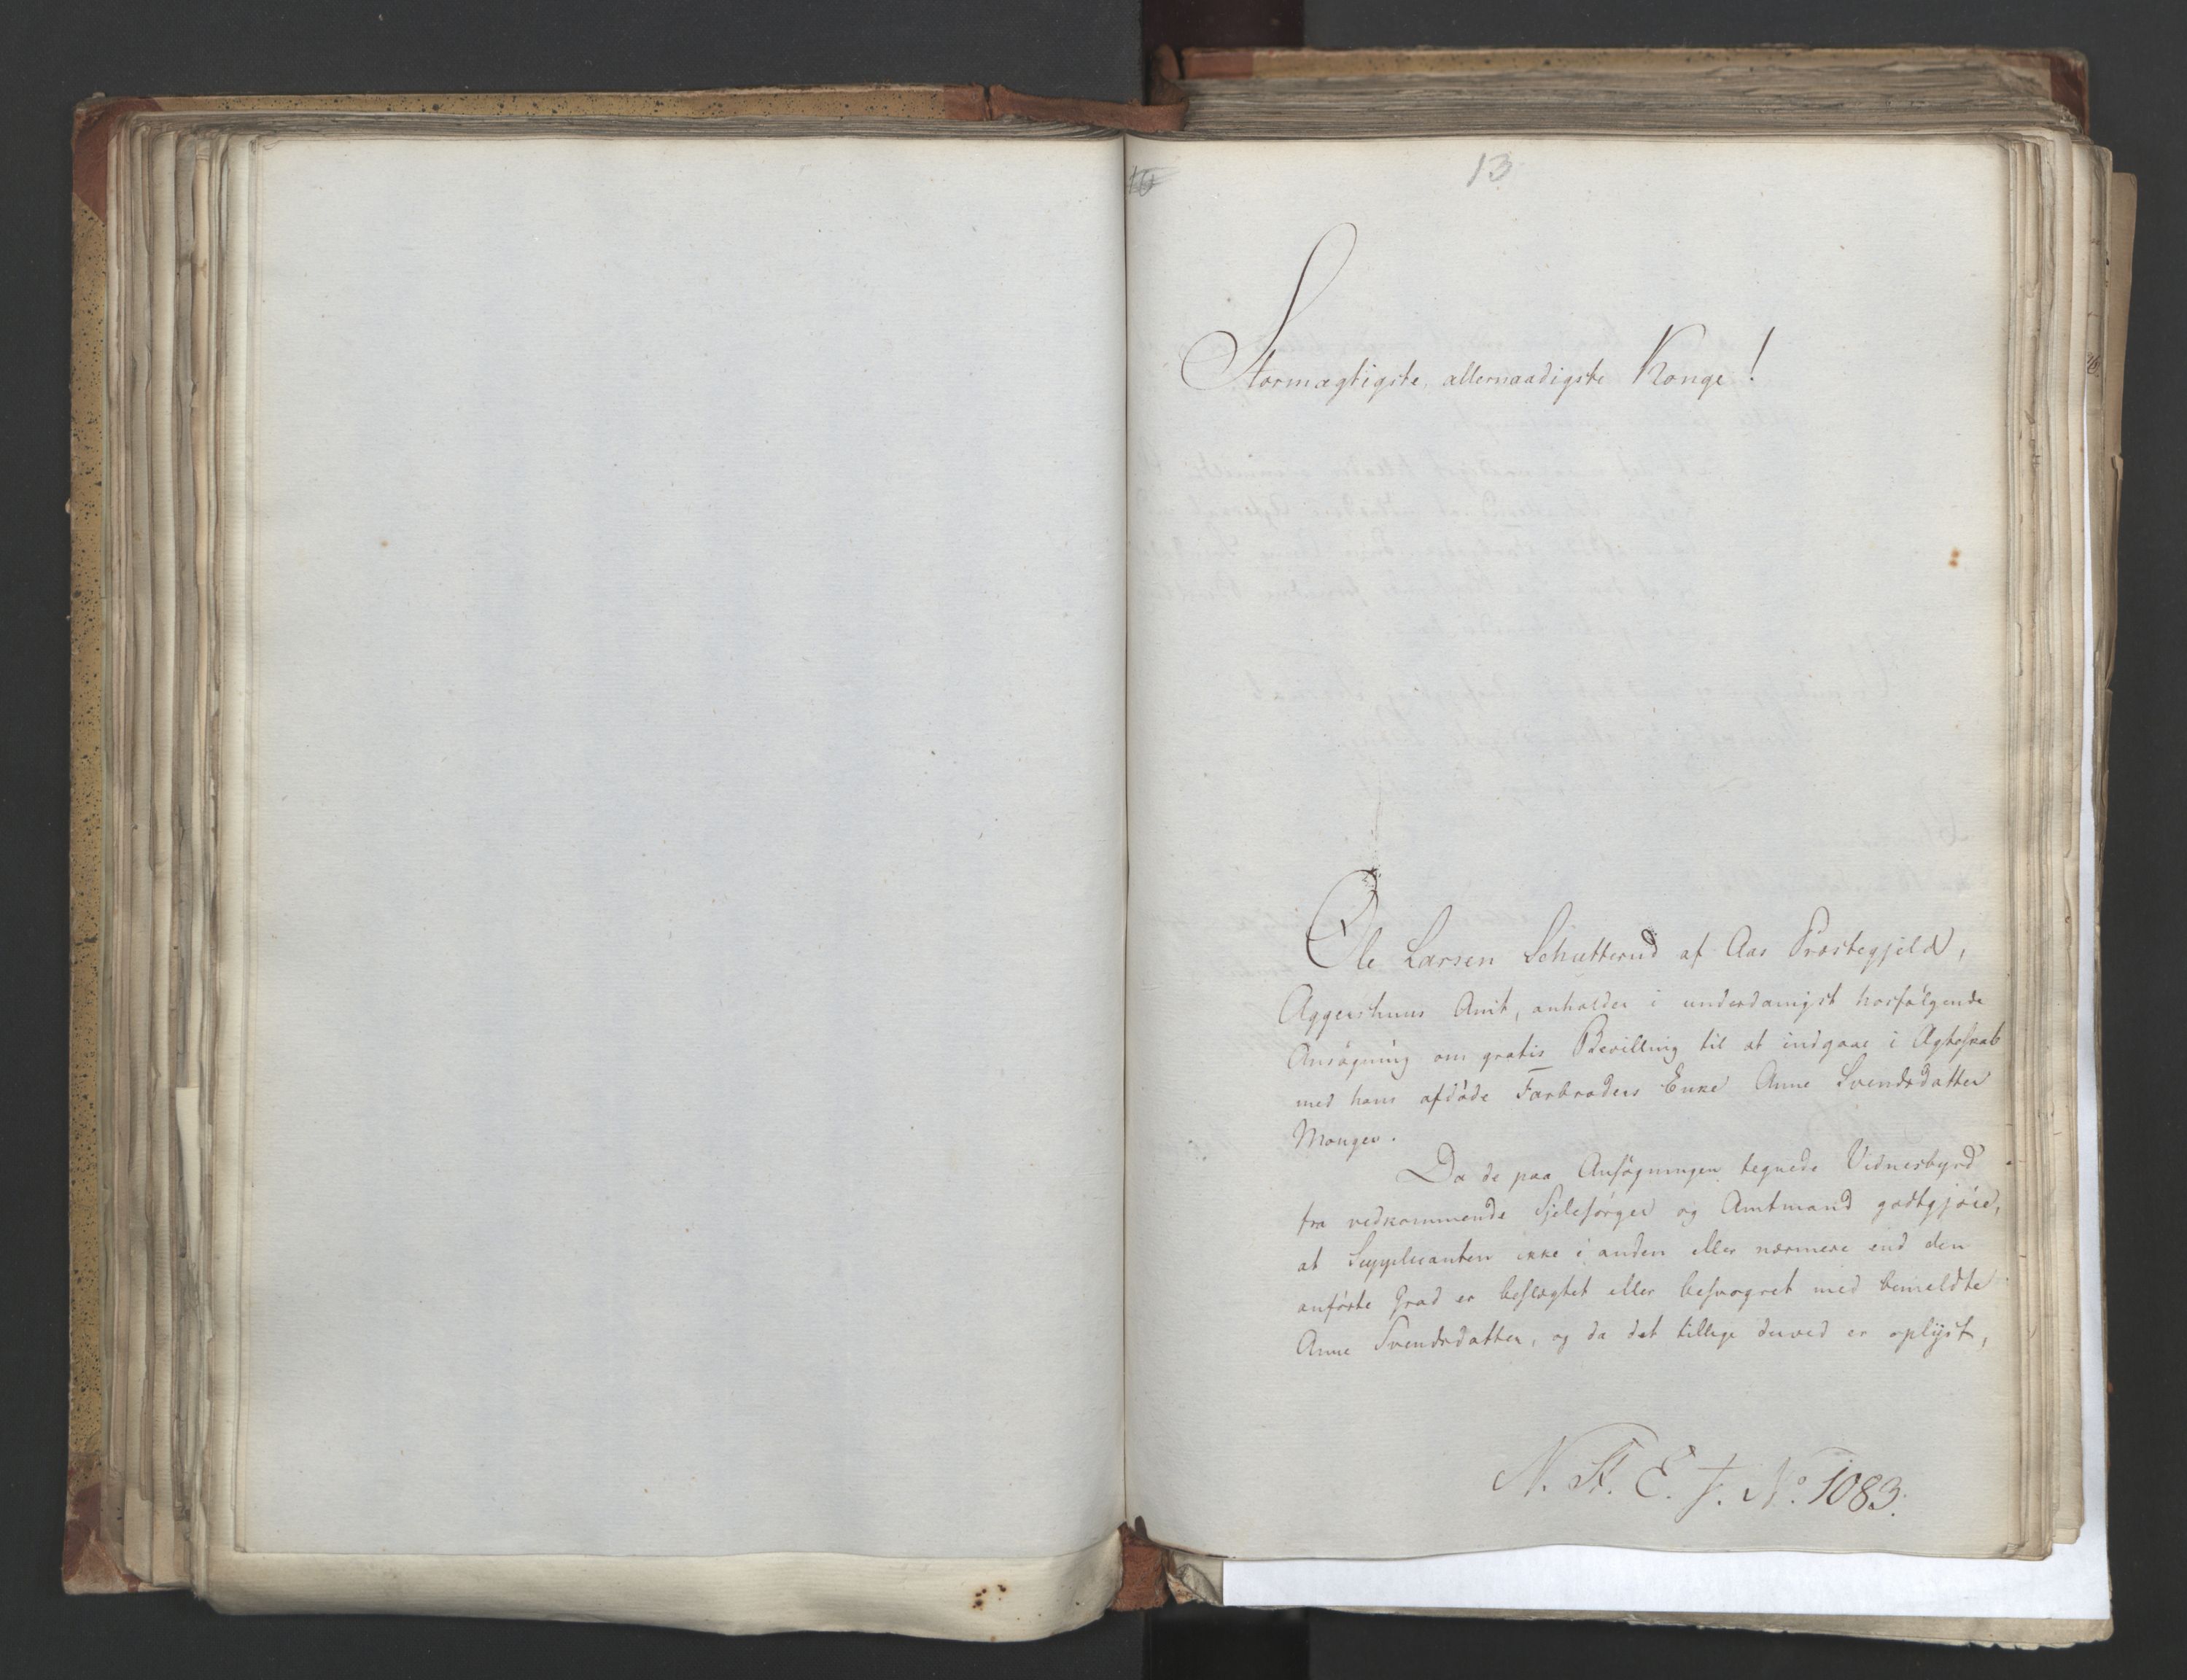 10
13
Stormægtigste, allernaadigste Konge!
Ole Larsen Schutterud af Aas Præstegjeld,
Aggershuus Amt, anholder i underdanigst hosfølgende
Ansøgning om gratis Bevilling til at indgaae i Ægteskab
med hans afdøde Farbroders Enke Anne Svendsdatter
Monger.
Da de paa Ansøgningen tegnede Vidnesbyrd
fra vedkommende Sjelesørger og Amtmand godtgjøre,
at Supplicanten ikke i anden eller nærmere end den
anførte Grad er beslægtet eller besvogret med bemeldte
Anne Svendsdatter, og da det tillige derved er oplyst,
N. St. E. J. No. 1083.